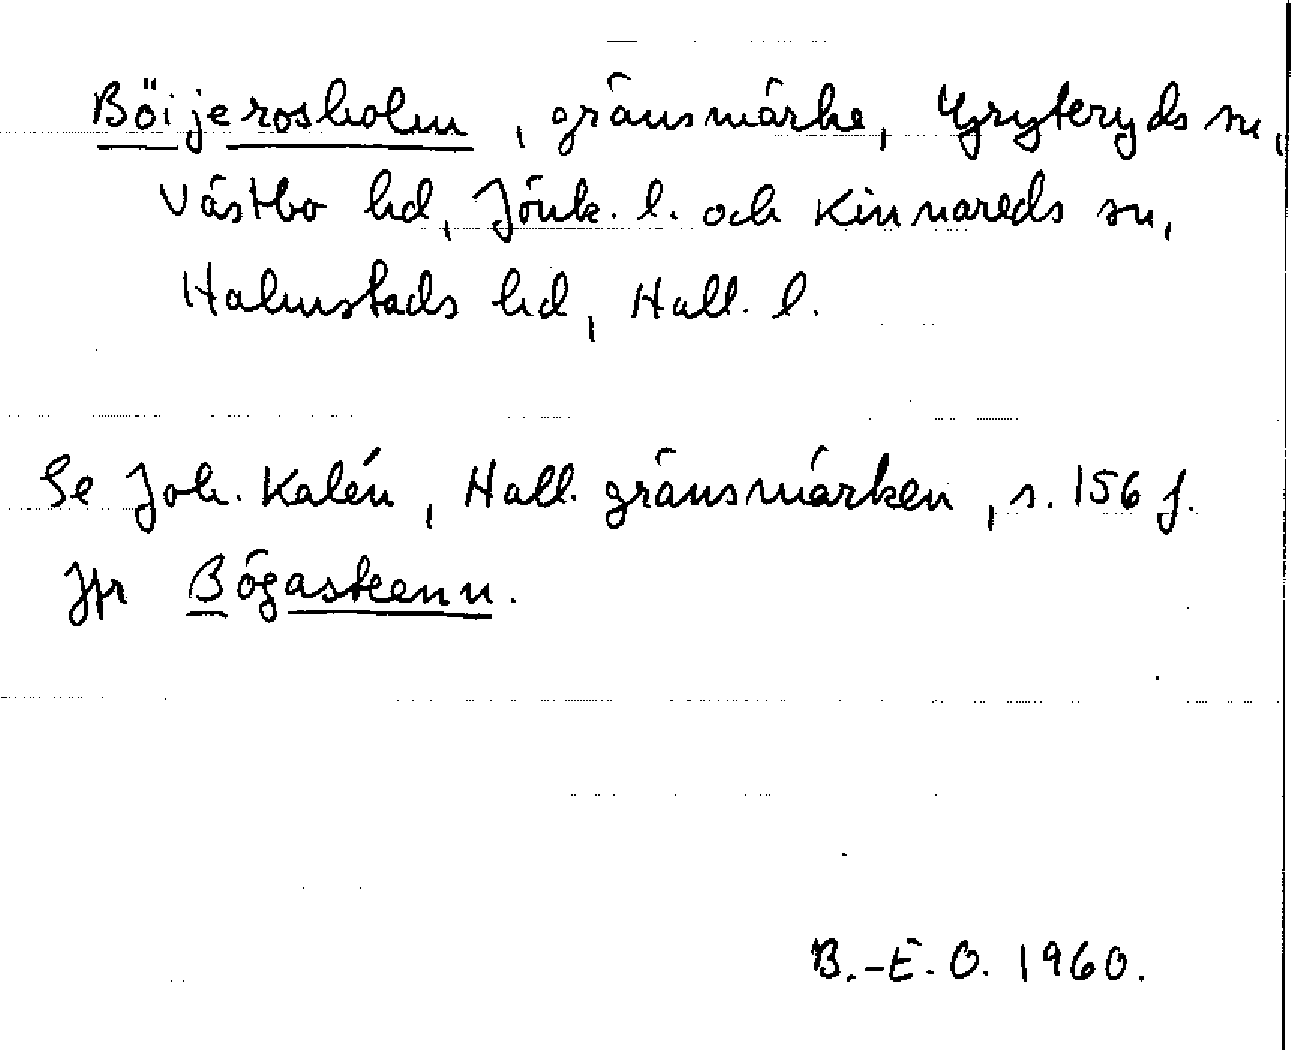 Böijerosholm, gränsmärke, Gryteryds sn,
Västbo hd, Jönk. l. och Kinnareds sn,
Halmstads hd, Hall. l.
Se Joh. Kalén, Hall. gränsmärken, s. 156 f.
Jfr Bögasteenn.
B.-E. O. 1960.